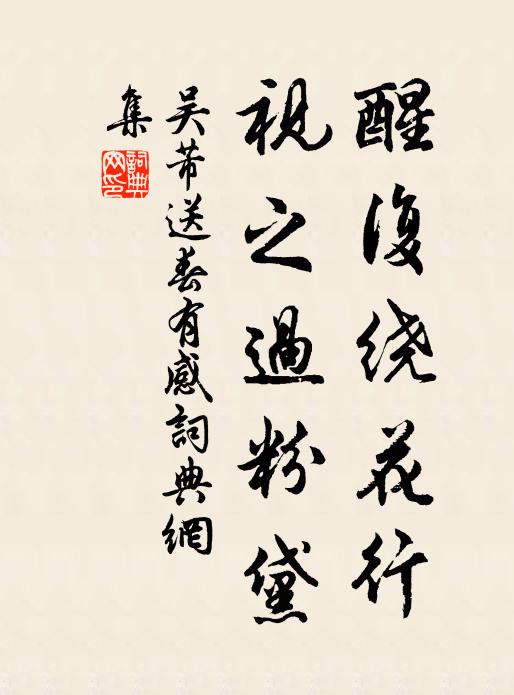 醒復绕花行
視之過粉黛
吴芾送春有感詞典網
集
詞典网印